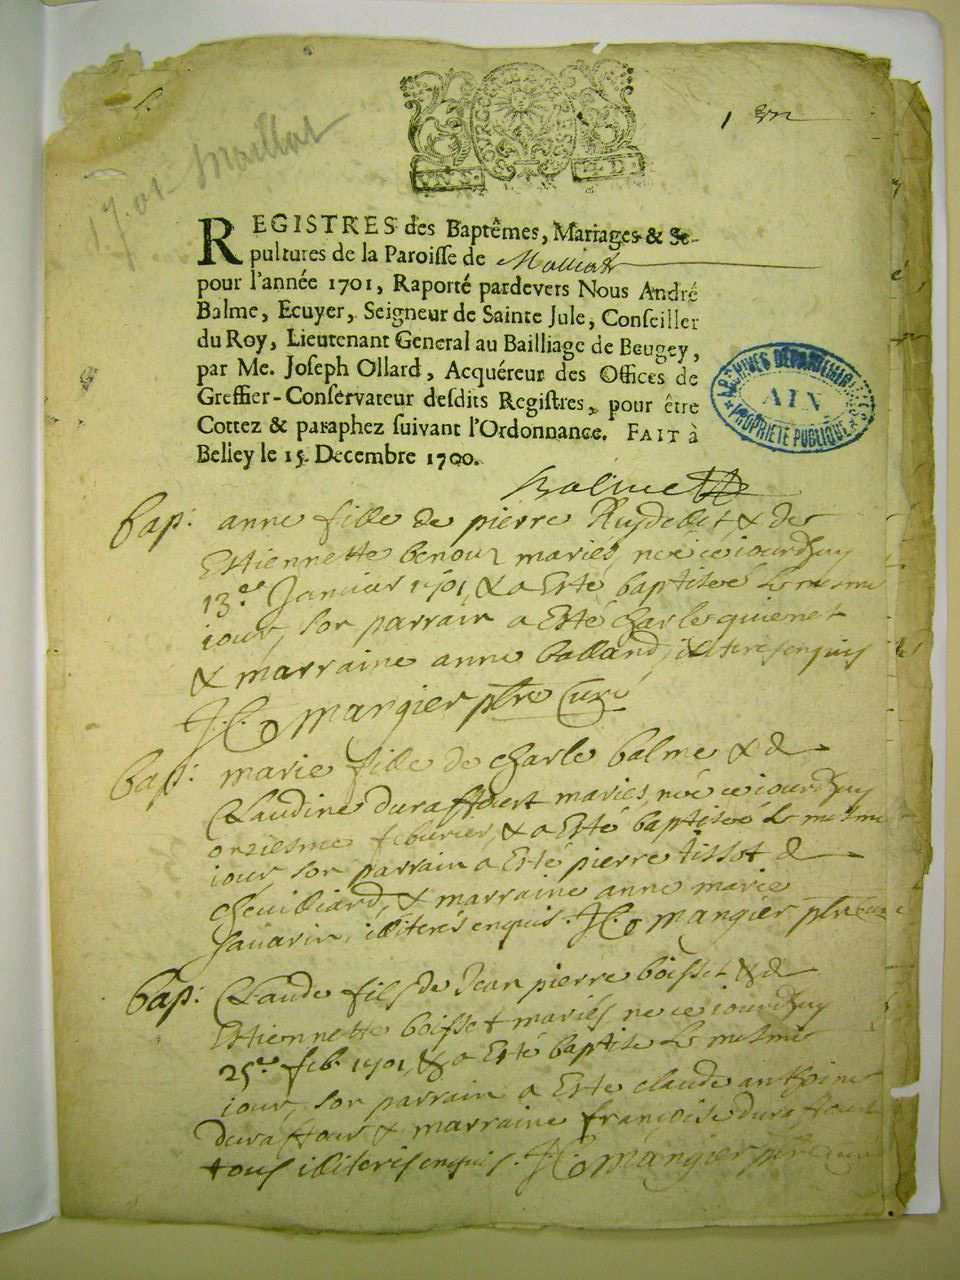 1
17.01 Maillat
REGISTRES des Baptêmes, Mariages & Se-
pultures de la Paroisse de Malliat
pour l'année 1701, Raporté pardevers Nous André
Balme, Ecuyer, Seigneur de Sainte Jule, Conseiller
du Roy, Lieutenant General au Bailliage de Beugey,
par Me. Joseph Ollard, Acquéreur des Offices de
Greffier-Conservateur desdits Registres, pour être
Cottez & paraphez suivant l'Ordonnance. FAIT à
Belley le 15. Decembre 1700.
ARCHIVES DÉPARTEMENTALES
AIN
PROPRIÉTÉ PUBLIQUE
Balme
Bap: anne fille de pierre & de
Estiennette mariés, née ce iourdhuy
13.e Janvier 1701, & a Esté baptiseé le mesme
iour, son parrain a Esté charle
& marraine anne balland, illiterés enquis
J.C. mangier ptre Curé
Bap: marie fille de charle balme & de
Claudine duraffourt mariés, neé ce iourdhuy
onziesme febvrier, & a Esté baptiseé le mesme
iour, son parrain a Esté pierre tissot de
chevilliard, & marraine anne marie
savarin, illiterés enquis. J.C. mangier ptre Curé
Bap: Claude fils de Jean pierre boisset & de
Estiennette boisset mariés ne ce iourdhuy
25.e feb. 1701, & a Esté baptisé le mesme
iour, son parrain a Esté claude anthoine
duraffour & marraine françoise duraffour
tous illiteris enquis. J.C. mangier ptre Curé